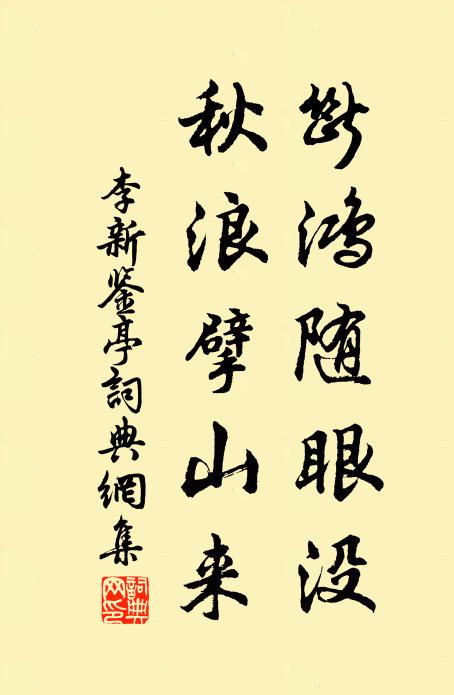 断鸿随眼没
秋浪擘山来
李新鉴亭詞典網集
詞典网印